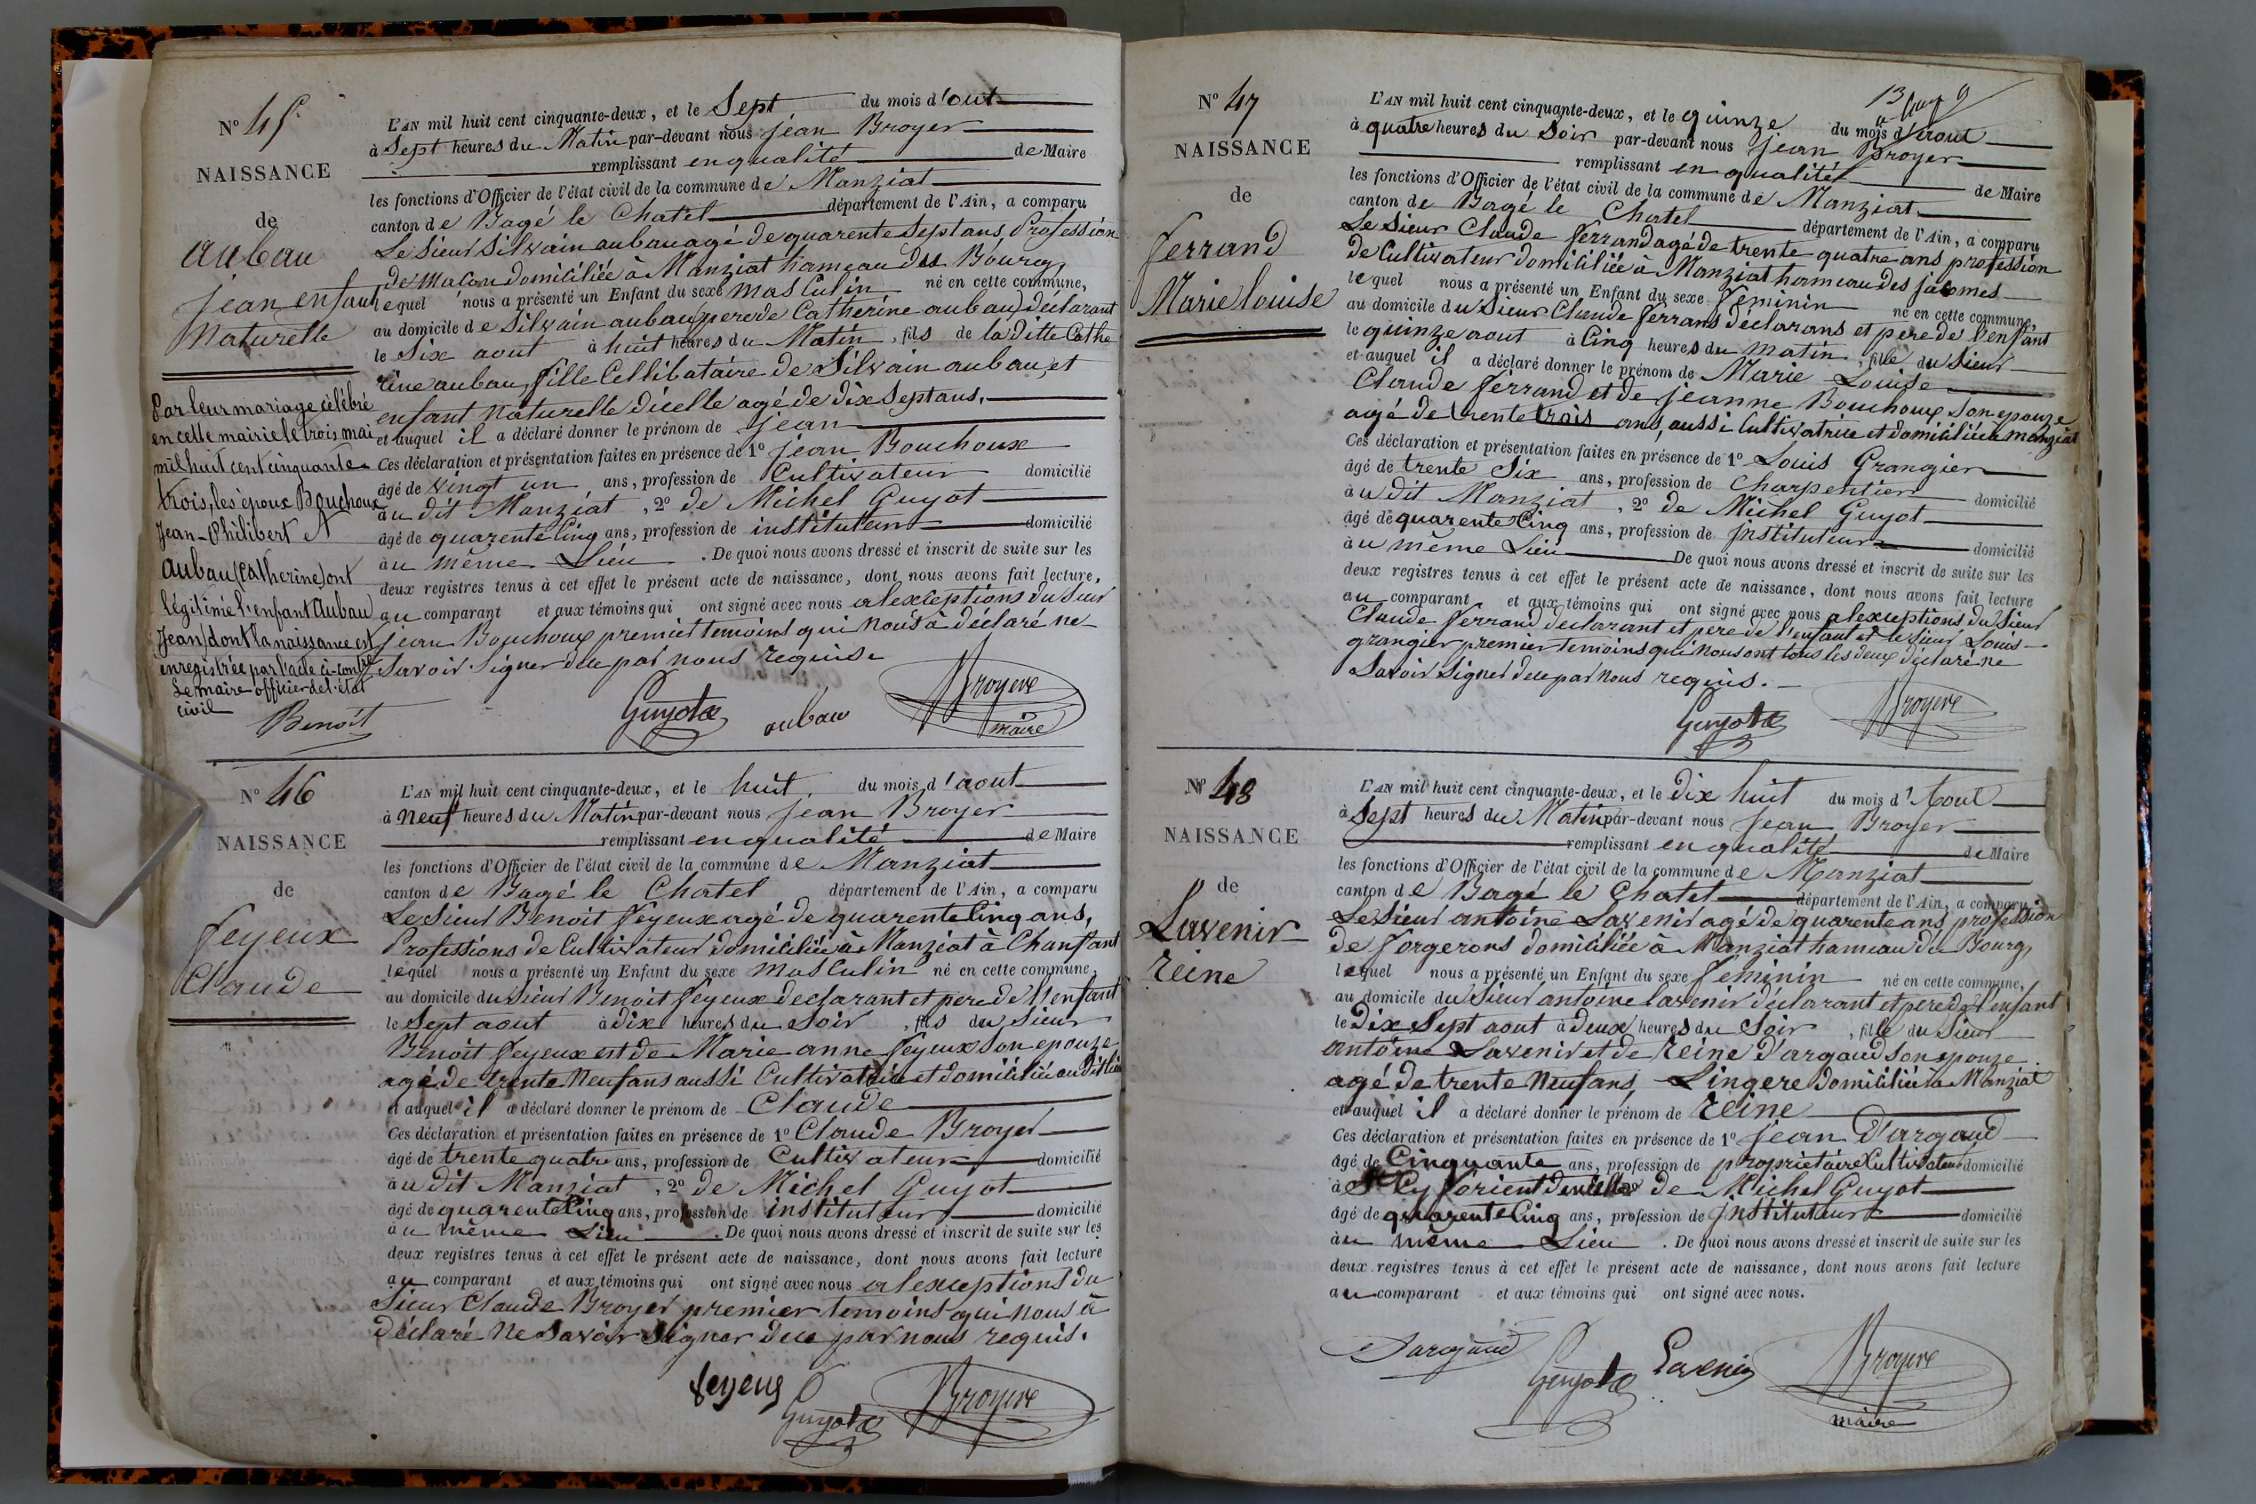 Nº 45.
NAISSANCE
de
aubau
jean enfant
Naturelle
Par leur mariage célébré
en cette mairie le trois mai
mil huit cent cinquante-
trois, les époux Bouchoux
Jean-Philibert et
Aubau (Catherine) ont
légitimé l'enfant Aubau
(Jean) dont la naissance est
enregistrée par l'acte ci-contre
Le maire officier de l'état
civil
Benoit
L'AN mil huit cent cinquante-deux, et le Sept du mois d'out
à Sept heures du Matin par-devant nous jean Broyer
remplissant en qualité de Maire
les fonctions d'Officier de l'état civil de la commune de Manziat
canton de Bagé le Chatel département de l'Ain, a comparu
Le Sieur Silvain aubau agé de quarente Sept ans, Profession
de Macon domiciliée à Manziat hameau des Bourg,
lequel nous a présenté un Enfant du sexe masculin né en cette commune,
au domicile de Silvain aubau (pere de Catherine aubau) déclarant
le Six aout à huit heures du Matin, fils de la ditte Cathe
rine aubau, fille Cellibataire de Silvain aubau, et
enfant Naturelle dicelle agé de dix Sept ans,
et auquel il a déclaré donner le prénom de jean
Ces déclaration et présentation faites en présence de 1º jean Bouchoux
âgé de vingt un ans, profession de Cultivateur domicilié
àu dit Manziat, 2º de Michel Guyot
âgé de quarente Cinq ans, profession de instituteur domicilié
àu même Lieu. De quoi nous avons dressé et inscrit de suite sur les
deux registres tenus à cet effet le présent acte de naissance, dont nous avons fait lecture,
au comparant et aux témoins qui ont signé avec nous alexceptions du Sieur
jean Bouchoux premier temoins qui nous à déclaré ne
Savoir Signer duc par nous requis.
Guyot aubau Broyer
maire
Nº 46
NAISSANCE
de
feyeux
Claude
L'AN mil huit cent cinquante-deux, et le huit. du mois d'aout
à Neuf heures du Matin par-devant nous jean Broyer
remplissant en qualité de Maire
les fonctions d'Officier de l'état civil de la commune de Manziat
canton de Bagé le Chatel département de l'Ain, a comparu
Le Sieur Benoit feyeux agé de quarente Cinq ans,
Professions de Cultivateur domiciliée à Manziat à Chanfant
lequel nous a présenté un Enfant du sexe masculin né en cette commune,
au domicile du Sieur Benoit feyeux declarant et pere de l'enfant
le Sept aout à dix heures du Soir, fils du Sieur
Benoit feyeux est de Marie anne feyeux Son epouze
agé de trente Neuf ans aussi Cultivatrice et domiciliée au dit lieu
et auquel il a déclaré donner le prénom de Claude
Ces déclaration et présentation faites en présence de 1º Claude Broyer
âgé de trente quatre ans, profession de Cultivateur domicilié
àu dit Manziat, 2º de Michel Guyot
âgé de quarente Cinq ans, profession de instituteur domicilié
àu même Lieu. De quoi nous avons dressé et inscrit de suite sur les
deux registres tenus à cet effet le présent acte de naissance, dont nous avons fait lecture
au comparant et aux témoins qui ont signé avec nous alexceptions du
Sieur Claude Broyer premier temoins qui nous à
déclaré Ne Savoir Signer duc par nous requis.
feyeux Guyot Broyer
Nº 47
NAISSANCE
de
ferrand
Marie louise
L'AN mil huit cent cinquante-deux, et le quinze du mois d'aout
à quatre heures du Soir par-devant nous jean Broyer
remplissant en qualité de Maire
les fonctions d'Officier de l'état civil de la commune de Manziat
canton de Bagé le Chatel département de l'Ain, a comparu
Le Sieur Claude ferrand agé de trente quatre ans profession
de Cultivateur domiciliée à Manziat hameau des jacomes
lequel nous a présenté un Enfant du sexe feminin né en cette commune,
au domicile du Sieur Claude ferrans déclarans et pere de l'enfant
le quinze aout à Cinq heures du matin, fille du Sieur
et auquel il a déclaré donner le prénom de Marie Louise
Claude ferrand et de jeanne Bouchoux Son epouze
agé de trente trois ans, aussi Cultivatrice et domiciliée a Manziat
Ces déclaration et présentation faites en présence de 1º Louis Grangier
âgé de trente Six ans, profession de Charpentier domicilié
àu dit Manziat, 2º de Michel Guyot
âgé de quarente Cinq ans, profession de Instituteur domicilié
àu même Lieu De quoi nous avons dressé et inscrit de suite sur les
deux registres tenus à cet effet le présent acte de naissance, dont nous avons fait lecture
au comparant et aux témoins qui ont signé avec nous alexceptions du Sieur
Claude ferrand declarant et pere de l'enfant et le Sieur Louis
grangier premier temoins qui nous ont tous les deux déclaré ne
Savoir Signer duc par nous requis.
Guyot Broyer
Nº 48
NAISSANCE
de
Lavenir
reine
L'AN mil huit cent cinquante-deux, et le Dix huit du mois d'Aout
à Sept heures du Matin par-devant nous Jean Broyer
remplissant en qualité de Maire
les fonctions d'Officier de l'état civil de la commune de Manziat
canton de Bagé le Chatel département de l'Ain, a comparu
Le Sieur antoine Lavenir agé de quarente ans profession
de forgerons domiciliée à Manziat hameau du Bourg,
lequel nous a présenté un Enfant du sexe feminin né en cette commune,
au domicile du Sieur antoine Lavenir déclarant et pere de l'enfant
le Dix Sept aout à deux heures du Soir, fille du Sieur
antoine Lavenir et de reine d'argaud son epouze
agé de trente Neuf ans, Lingere domiciliée a Manziat
et auquel il a déclaré donner le prénom de reine
Ces déclaration et présentation faites en présence de 1º jean D'argaud
âgé de Cinquante ans, profession de propriétaire Cultivateur domicilié
à St Cyr de Michel Guyot
âgé de quarente Cinq ans, profession de Instituteur domicilié
àu même Lieu. De quoi nous avons dressé et inscrit de suite sur les
deux registres tenus à cet effet le présent acte de naissance, dont nous avons fait lecture
au comparant et aux témoins qui ont signé avec nous.
Dargaud Guyot Lavenir Broyer
maire